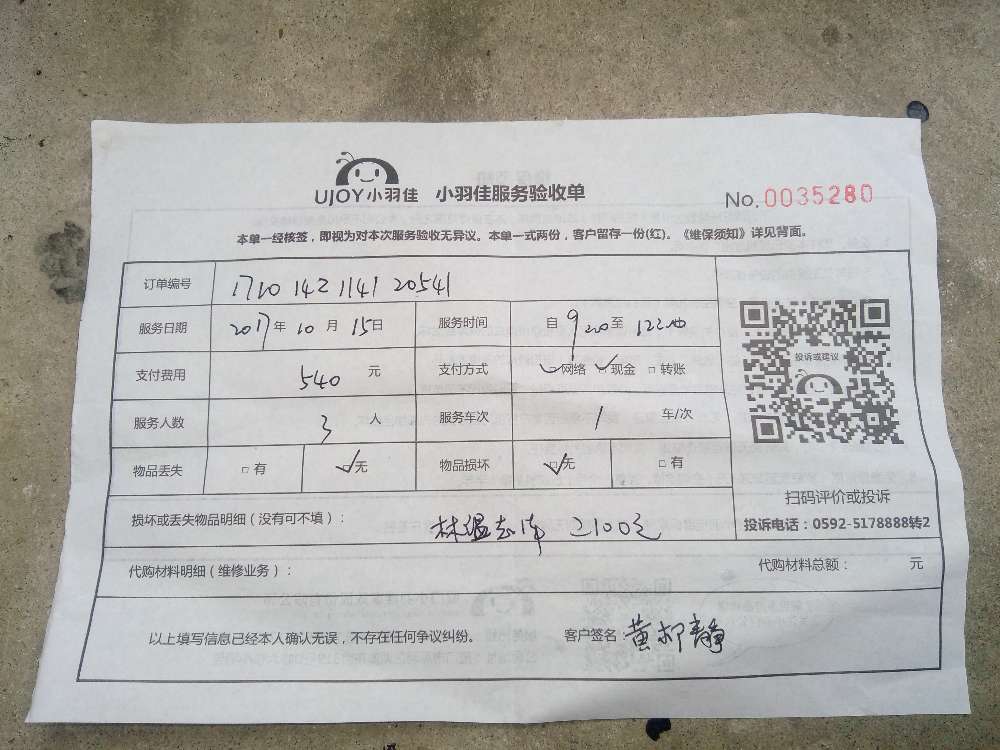 UJOY小羽佳 小羽佳服务验收单
No.0035280
本单一经核签，即视为对本次服务验收无异议。本单一式两份，客户留存一份(红)。《维保须知》详见背面。
订单编号 1710 142 1141 20541
服务日期 2017年 10月 15日 服务时间 自 920至
支付费用 540 元 支付方式 网络 现金 转账
服务人数 3 人 服务车次 1 车/次
物品丢失 有 无 物品损坏 无 有
投诉或建议
扫码评价或投诉
投诉电话：0592-5178888转2
损坏或丢失物品明细（没有可不填）： 100
代购材料明细（维修业务）： 代购材料总额： 元
以上填写信息已经本人确认无误，不存在任何争议纠纷。 客户签名： 黄 静